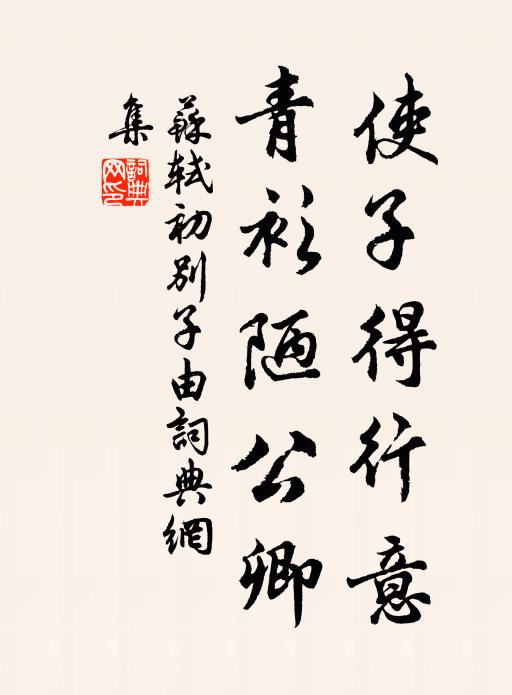 使子得行意
青衫陋公卿
蘇軾初別子由詞典網
集
詞典網印